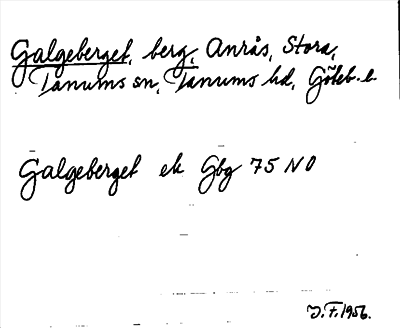 Galgeberget, berg, Anrås, Stora,
Tanums sn, Tanums hd, Göteb. l.
Galgeberget ek Gbg 75 NO
J.F. 1956.